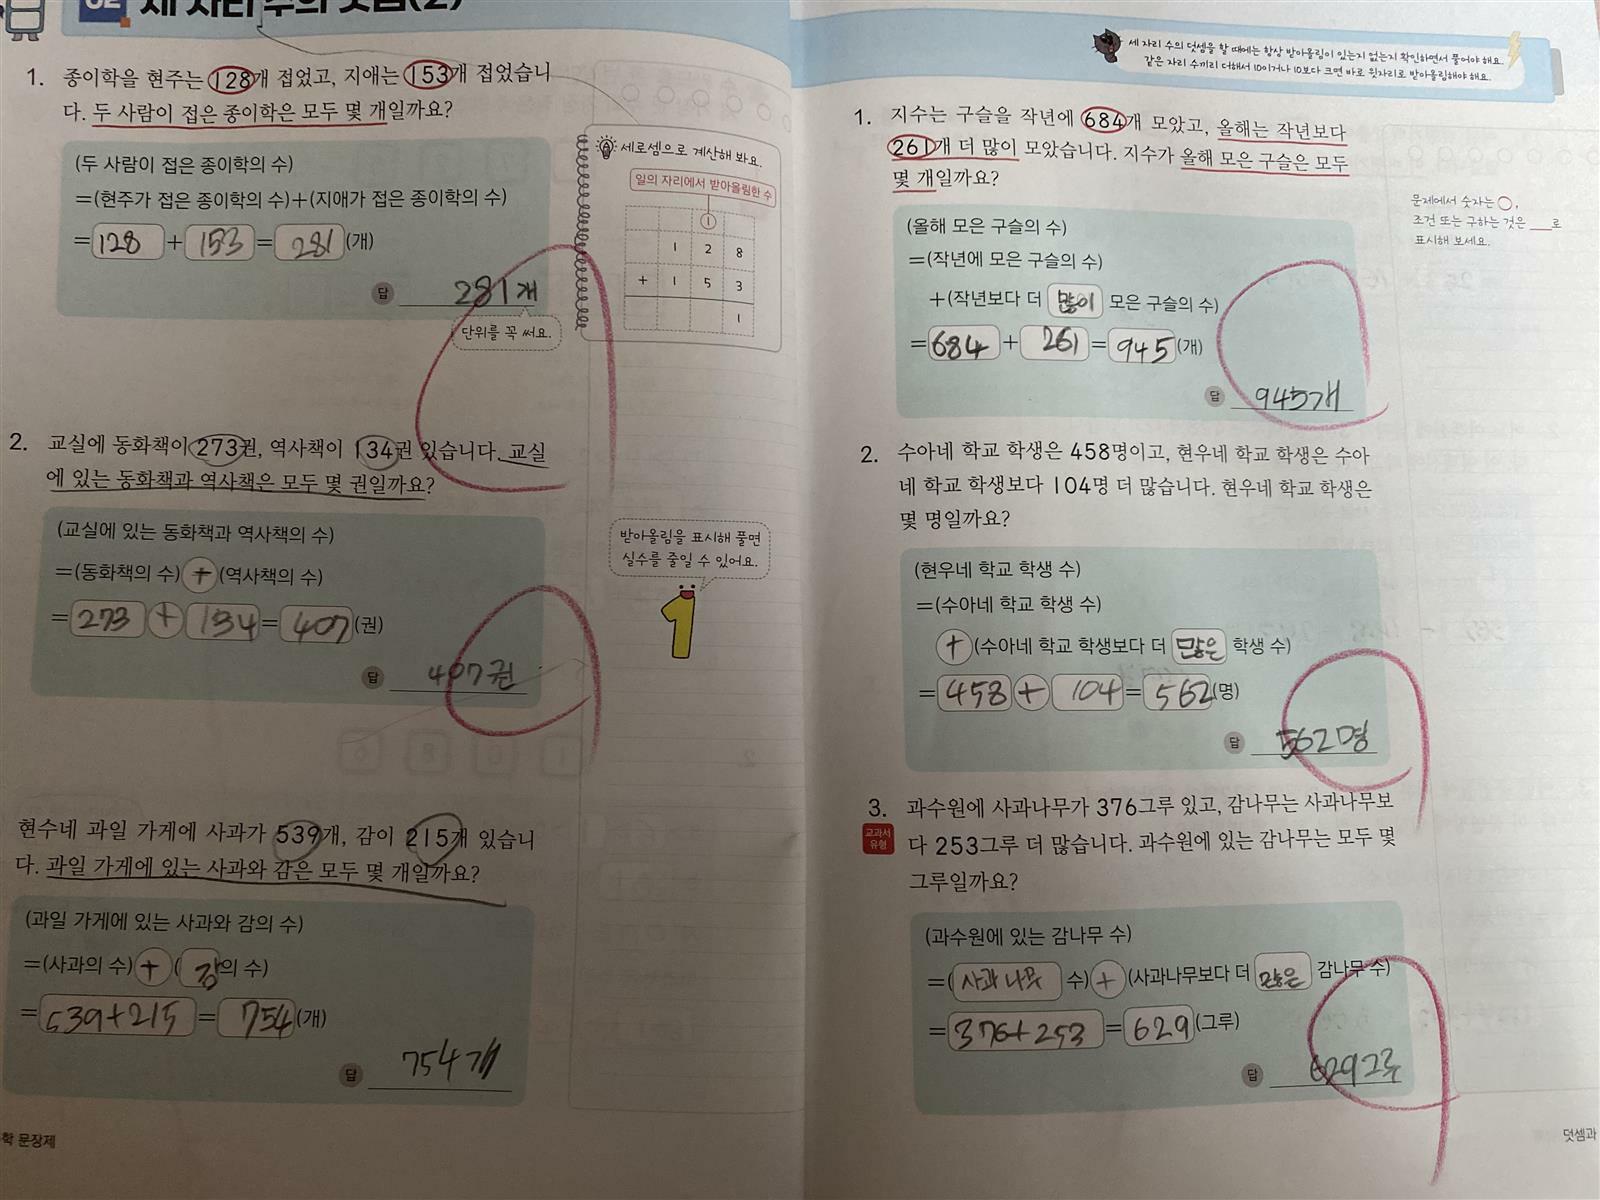 02 세 자리 수의 덧셈(2)
1. 종이학을 현주는 128개 접었고, 지애는 153개 접었습니
다. 두 사람이 접은 종이학은 모두 몇 개일까요?
(두 사람이 접은 종이학의 수)
=(현주가 접은 종이학의 수)+(지애가 접은 종이학의 수)
=128+153=281(개)
답 281개
단위를 꼭 써요.
세로셈으로 계산해 봐요.
일의 자리에서 받아올림한 수
1
1 2 8
+ 1 5 3
1
2. 교실에 동화책이 273권, 역사책이 134권 있습니다. 교실
에 있는 동화책과 역사책은 모두 몇 권일까요?
(교실에 있는 동화책과 역사책의 수)
=(동화책의 수)+(역사책의 수)
=273+134=407(권)
답 407권
받아올림을 표시해 풀면
실수를 줄일 수 있어요.
1
현수네 과일 가게에 사과가 539개, 감이 215개 있습니
다. 과일 가게에 있는 사과와 감은 모두 몇 개일까요?
(과일 가게에 있는 사과와 감의 수)
=(사과의 수)+(감의 수)
=539+215=754(개)
답 754개
학 문장제
세 자리 수의 덧셈을 할 때에는 항상 받아올림이 있는지 없는지 확인하면서 풀어야 해요.
같은 자리 수끼리 더해서 10이거나 10보다 크면 바로 윗자리로 받아올림해야 해요.
1. 지수는 구슬을 작년에 684개 모았고, 올해는 작년보다
261개 더 많이 모았습니다. 지수가 올해 모은 구슬은 모두
몇 개일까요?
문제에서 숫자는 ○,
조건 또는 구하는 것은 ___로
표시해 보세요.
(올해 모은 구슬의 수)
=(작년에 모은 구슬의 수)
+(작년보다 더 많이 모은 구슬의 수)
=684+261=945(개)
답 945개
2. 수아네 학교 학생은 458명이고, 현우네 학교 학생은 수아
네 학교 학생보다 104명 더 많습니다. 현우네 학교 학생은
몇 명일까요?
(현우네 학교 학생 수)
=(수아네 학교 학생 수)
+(수아네 학교 학생보다 더 많은 학생 수)
=458+104=562(명)
답 562명
3. 과수원에 사과나무가 376그루 있고, 감나무는 사과나무보
교과서
유형
다 253그루 더 많습니다. 과수원에 있는 감나무는 모두 몇
그루일까요?
(과수원에 있는 감나무 수)
=(사과나무 수)+(사과나무보다 더 많은 감나무 수)
=376+253=629(그루)
답 629그루
덧셈과